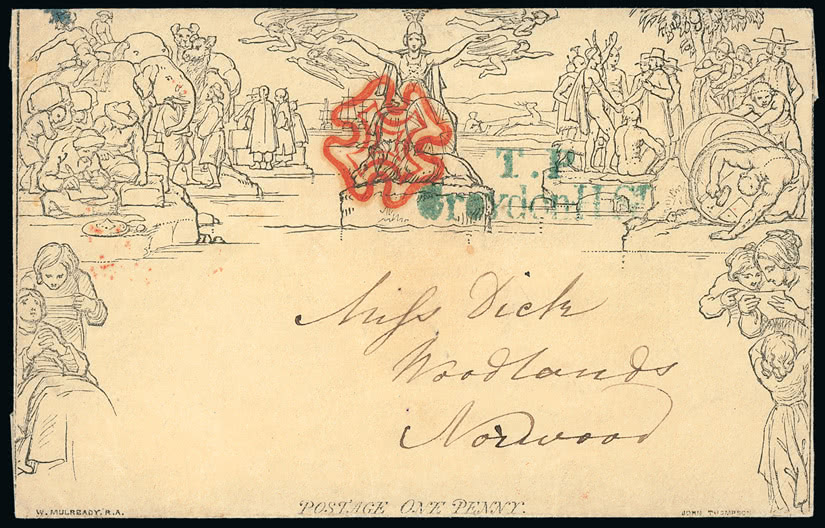 T.P
Croydon H.St
Miss Dick
Woodlands
Norwood
POSTAGE ONE PENNY.
W. MULREADY. R.A.
JOHN THOMPSON